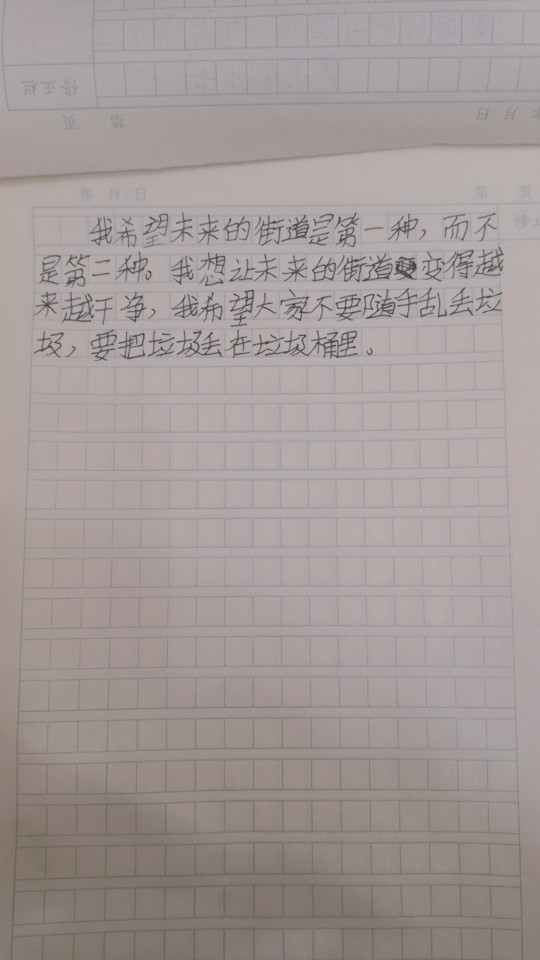 修正栏
第 页
年 月 日
年 月 日 第 页
修正
我希望未来的街道是第一种，而不
是第二种。我想让未来的街道变得越
来越干净，我希望大家不要随手乱丢垃
圾，要把垃圾丢在垃圾桶里。